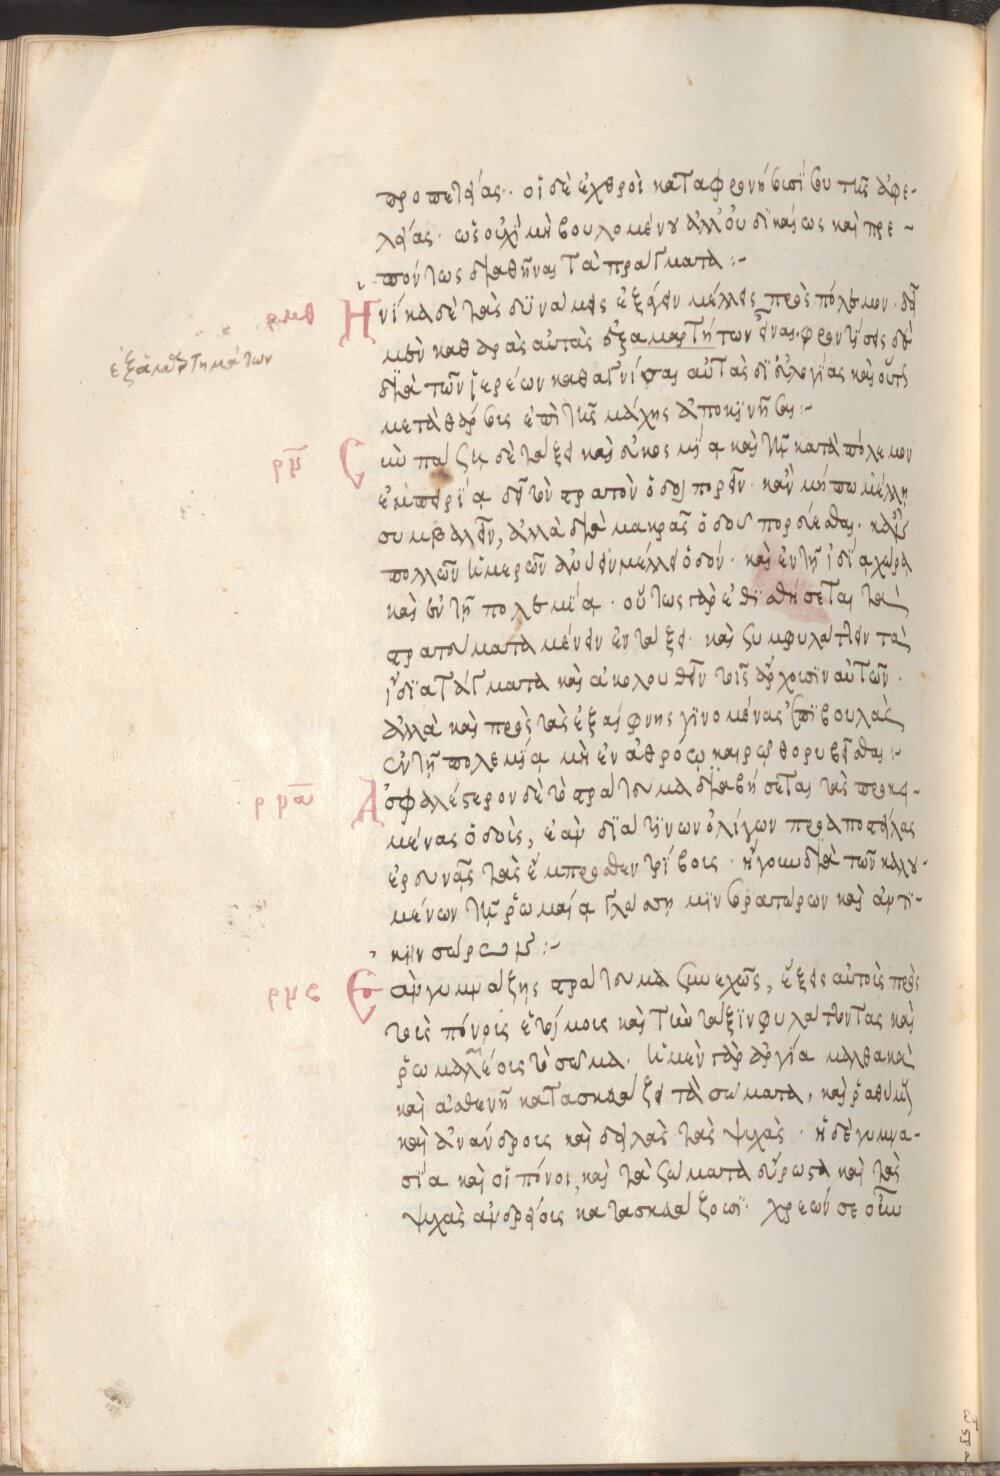 προπετείας. οἱ δὲ ἐχθροὶ καταφρονήσωσί σου τῆς ἀφε-
λείας. ὡς οὐχὶ μὴ βουλομένου ἀλλ' οὐ δικαίως καὶ πρε-
πόντως διαθῆναι τὰ πράγματα :-
ρμθ Ἡνίκα δὲ τὰς δυνάμεις ἐξάγειν μέλλεις πρὸς πόλεμον. δεῖ
μὲν καθαρὰς αὐτὰς ἐξαμαρτήτων εἶναι. φροντίσεις δὲ
ἐξ ἁμαρτημάτων
διὰ τῶν ἱερέων καθαγνίσαι αὐτὰς δι' εὐλογίας καὶ οὕτω
μετὰ θάρσους ἐπὶ τῆς μάχης ἀποκινῆσαι :-
ρμ Σὺν πάσῃ δὲ τάξει καὶ εὐκοσμίᾳ καὶ τῇ κατὰ πόλεμον
ἐμπειρίᾳ δεῖ τὸν στρατὸν ὁδοιπορεῖν. κἂν μήπω μέλλῃ
συμβαλεῖν, ἀλλὰ διὰ μακρᾶς ὁδοῦ πορεύεσθαι. κἂν
πολλῶν ἡμερῶν ἀνύειν μέλλει ὁδόν. καὶ ἐν τῇ ἰδίᾳ χώρᾳ
καὶ ἐν τῇ πολεμίᾳ. οὕτως γὰρ ἐθισθήσεται τὰ
στρατεύματα μένειν ἐν τάξει. καὶ συμφυλάττειν τὰ
ἴδια τάγματα καὶ ἀκολουθεῖν τοῖς ἄρχουσιν αὐτῶν.
ἀλλὰ καὶ πρὸς τὰς ἐξαίφνης γινομένας ἐπιβουλὰς
ἐν τῇ πολεμίᾳ μὴ ἐν ἀθρόῳ καιρῷ θορυβεῖσθαι :-
ρμα Ἀσφαλέστερον δὲ τὸ στράτευμα διαβήσεται τὰς προκει-
μένας ὁδοὺς, ἐὰν διά τινων ὀλίγων προαποστείλας
ἐρευνᾷς τὰς ἔμπροσθεν τρίβους. ἤγουν διὰ τῶν καλου-
μένων τῇ ῥωμαίᾳ γλώσσῃ μινσρατώρων καὶ ἀντι-
κινσώρων :-
ρμς Ἐὰν γυμνάζῃς στράτευμα συνεχῶς, ἕξεις αὐτοὺς πρὸς
τοὺς πόνους ἑτοίμους καὶ τὴν τάξιν φυλάττοντας καὶ
ῥωμαλέους τὸ σῶμα. ἡ μὲν γὰρ ἀργία μαλθακὰ
καὶ ἀσθενῆ κατασκευάζει τὰ σώματα, καὶ ῥᾳθύμους
καὶ ἀνάνδρους καὶ δειλὰς τὰς ψυχὰς. ἡ δὲ γυμνα-
σία καὶ οἱ πόνοι, καὶ τὰ σώματα εὔρωστα καὶ τὰς
ψυχὰς ἀνδρείους κατασκευάζουσι. χρεών σε οὖν